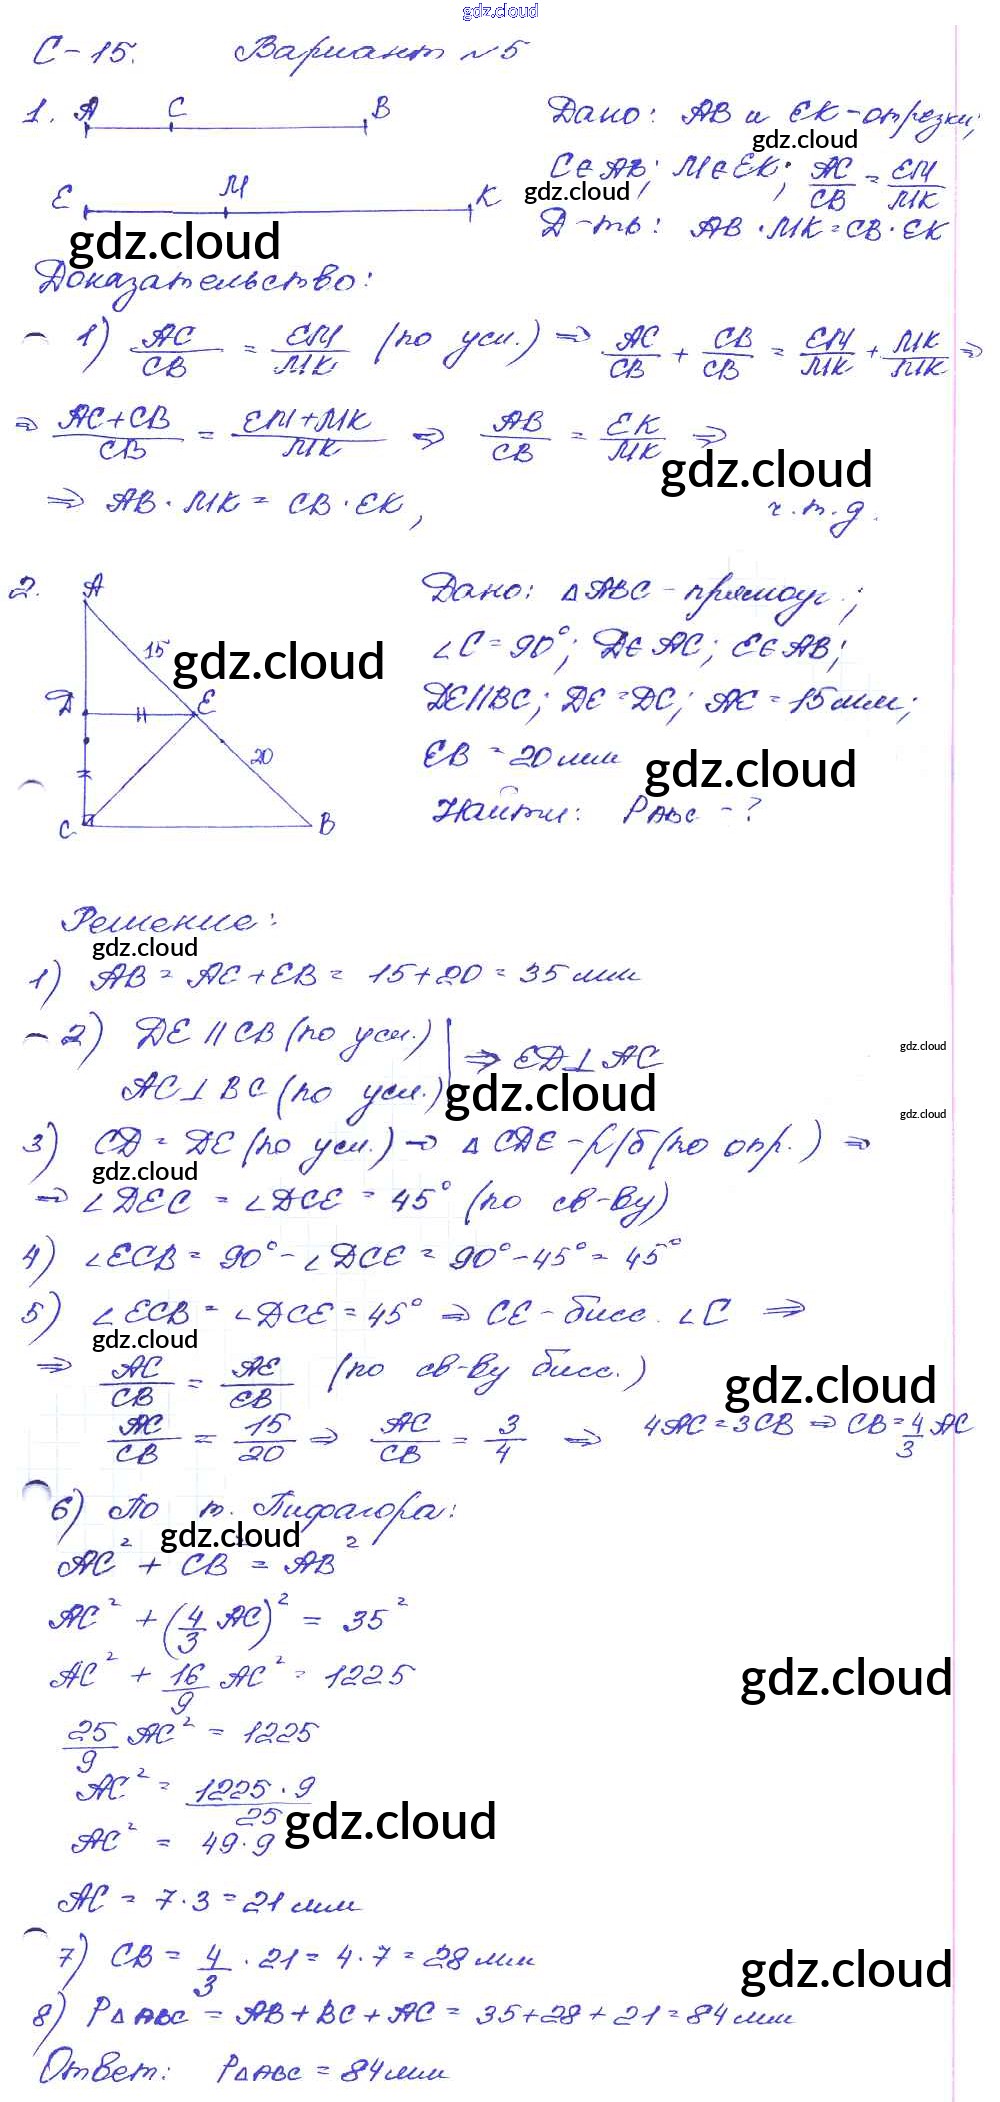 gdz.cloud
С-15. Вариант №5
1. A C B
Дано: AB и EK-отрезки;
gdz.cloud
C∈AB; M∈EK; AC/CB = EM/MK
gdz.cloud
E M K
Д-ть: AB·MK=CB·EK
gdz.cloud
Доказательство:
1) AC/CB = EM/MK (по усл.) ⇒ AC/CB + CB/CB = EM/MK + MK/MK ⇒
⇒ AC+CB/CB = EM+MK/MK ⇒ AB/CB = EK/MK ⇒
gdz.cloud
⇒ AB·MK = CB·EK, ч.т.д.
2. A
Дано: △ABC-прямоуг.;
15
gdz.cloud
∠C=90°; D∈AC; E∈AB;
D E
DE||BC; DE=DC; AE=15мм;
20
EB = 20мм
gdz.cloud
C B
Найти: P△ABC-?
Решение:
gdz.cloud
1) AB = AE+EB = 15+20 = 35мм
2) DE || CB (по усл.)
AC⊥BC (по усл.) ⇒ ED⊥AC
gdz.cloud
gdz.cloud
gdz.cloud
3) CD = DE (по усл.) ⇒ △CDE-р/б (по опр.) ⇒
gdz.cloud
⇒ ∠DEC = ∠DCE = 45° (по св-ву)
4) ∠ECB = 90°-∠DCE = 90°-45° = 45°
5) ∠ECB = ∠DCE = 45° ⇒ CE-бисс. ∠C ⇒
gdz.cloud
⇒ AC/CB = AE/EB (по св-ву бисс.)
gdz.cloud
AC/CB = 15/20 ⇒ AC/CB = 3/4 ⇒ 4AC=3CB ⇒ CB=4/3 AC
6) По т. Пифагора:
gdz.cloud
AC² + CB² = AB²
AC² + (4/3 AC)² = 35²
AC² + 16/9 AC² = 1225
gdz.cloud
25/9 AC² = 1225
AC² = 1225·9/25
gdz.cloud
AC² = 49·9
AC = 7·3 = 21мм
7) CB = 4/3 · 21 = 4·7 = 28мм
gdz.cloud
8) P△ABC = AB+BC+AC = 35+28+21 = 84мм
Ответ: P△ABC = 84мм